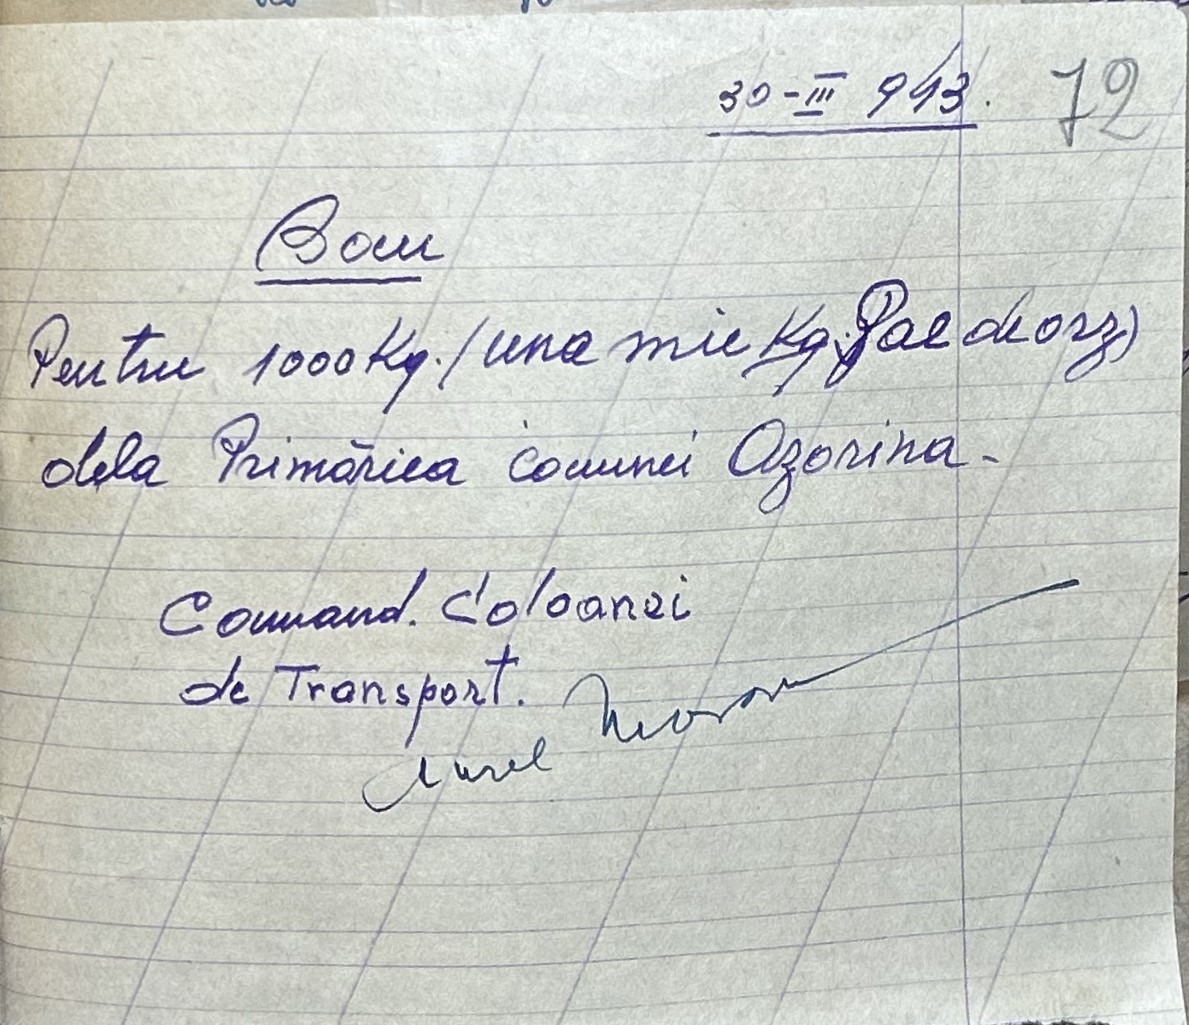 30-III 943. 72
Bon
Pentru 1000 Kg. (una mie Kg. Pae de orz)
dela Primăriea comunei Ozorina.-
Comand. Coloanei
de Transport.
Aurel